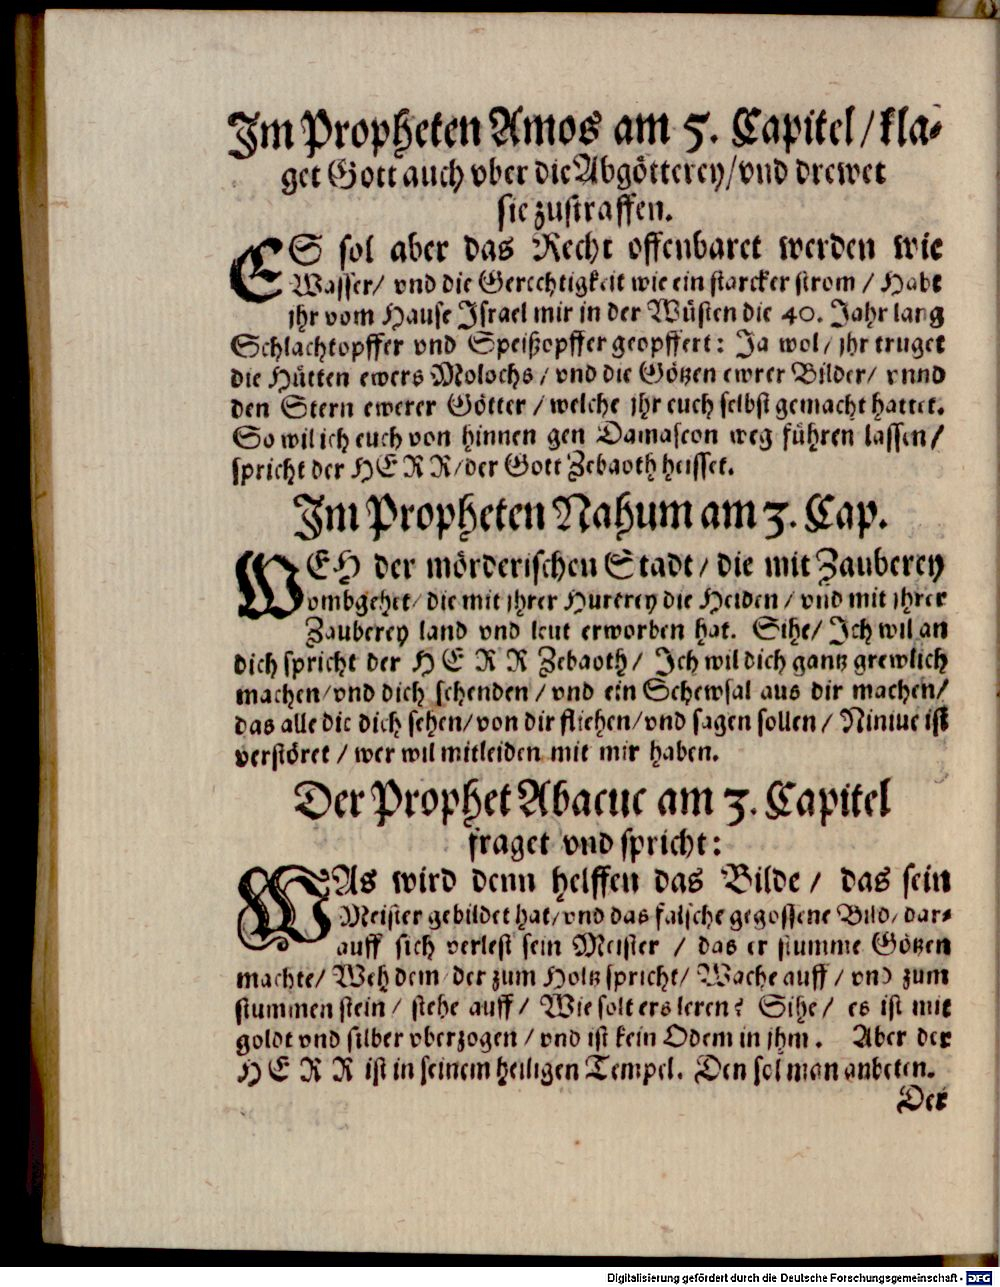 Im Propheten Amos am 5. Capitel / kla-
get Gott auch vber die Abgötterey / vnd drewet
sie zustraffen.
ES sol aber das Recht offenbaret werden wie
Wasser / vnd die Gerechtigkeit wie ein starcker strom / Habt
jhr vom Hause Israel mir in der Wüsten die 40. Jahr lang
Schlachtopffer vnd Speißopffer geopffert: Ja wol / jhr truget
die Hütten ewers Molochs / vnd die Götzen ewrer Bilder / vnnd
den Stern ewerer Götter / welche jhr euch selbst gemacht hattet.
So wil ich euch von hinnen gen Damascon weg führen lassen /
spricht der HERR / der Gott Zebaoth heisset.
Im Propheten Nahum am 3. Cap.
WEH der mörderischen Stadt / die mit Zauberey
vmbgehet / die mit jhrer Hurerey die Heiden / vnd mit jhrer
Zauberey land vnd leut erworben hat. Sihe / Ich wil an
dich spricht der HERR Zebaoth / Ich wil dich gantz grewlich
machen / vnd dich schenden / vnd ein Schewsal aus dir machen /
das alle die dich sehen / von dir fliehen / vnd sagen sollen / Niniue ist
verstöret / wer wil mitleiden mit mir haben.
Der Prophet Abacuc am 3. Capitel
fraget vnd spricht:
WAs wird denn helffen das Bilde / das sein
Meister gebildet hat / vnd das falsche gegossene Bild / dar-
auff sich verlest sein Meister / das er stumme Götzen
machte / Weh dem der zum Holtz spricht / Wache auff / vnd zum
stummen stein / stehe auff / Wie solt ers leren? Sihe / es ist mit
goldt vnd silber vberzogen / vnd ist kein Odem in jhm. Aber der
HERR ist in seinem heiligen Tempel. Den sol man anbeten.
Der
Digitalisierung gefördert durch die Deutsche Forschungsgemeinschaft - DFG